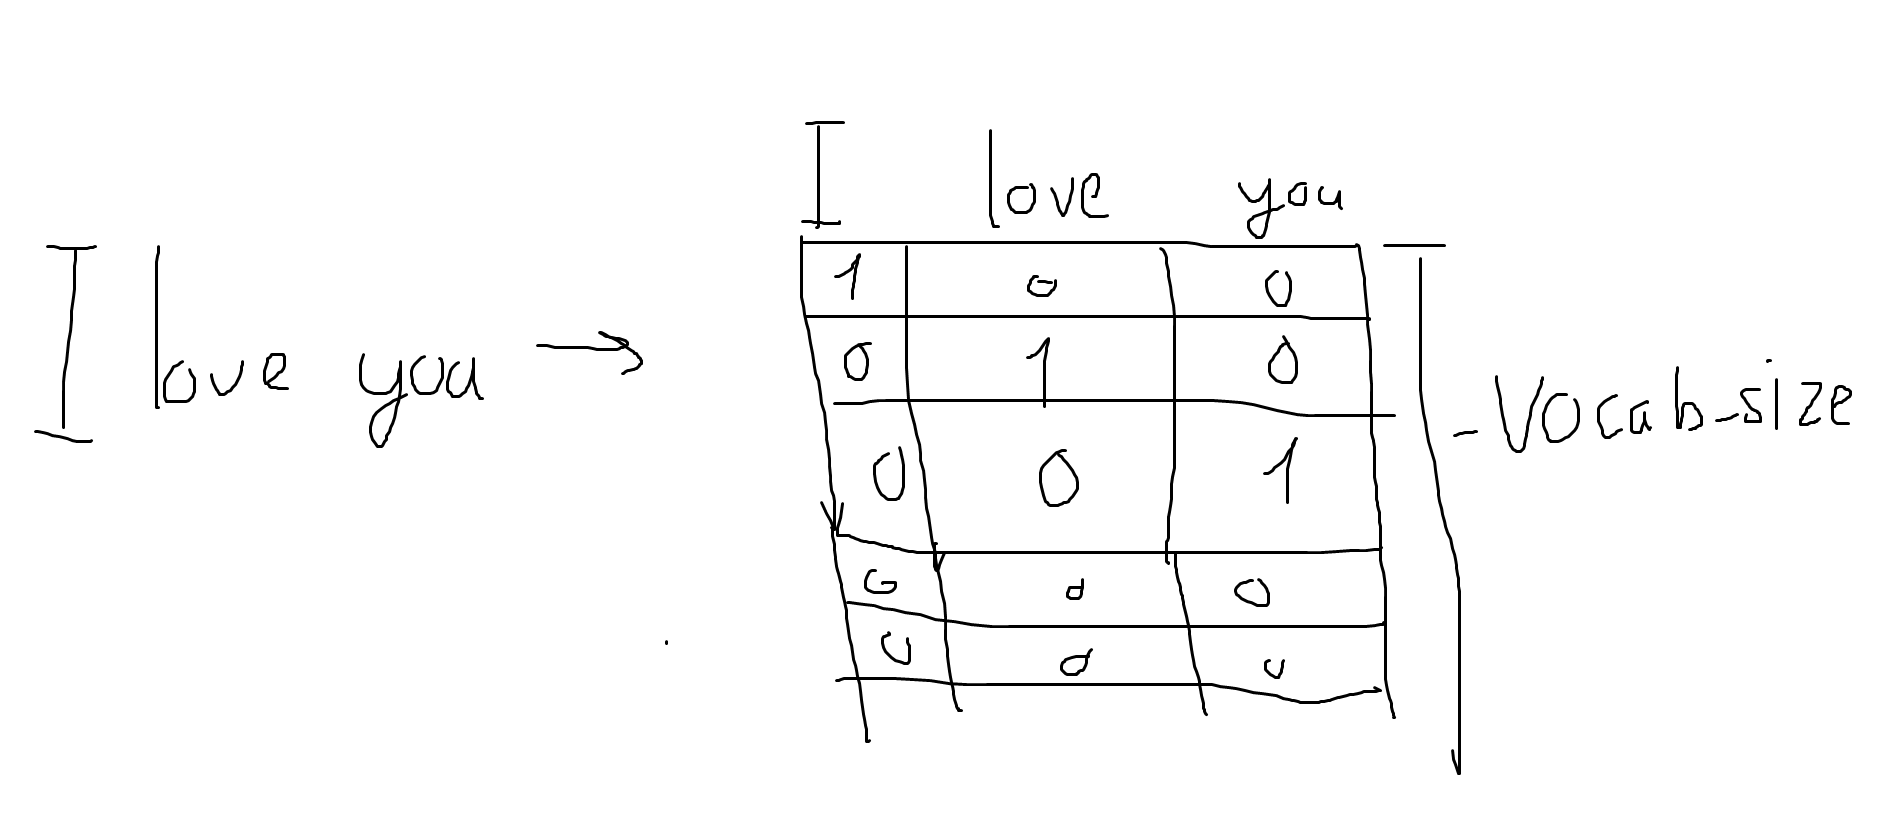 I love you →
I love you
1 0 0
0 1 0
0 0 1
0 0 0
0 0 0
- Vocab_size